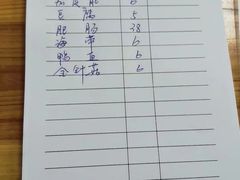 豆腐 5
肥肠 38
海带 6
鸭血 6
金针菇 6